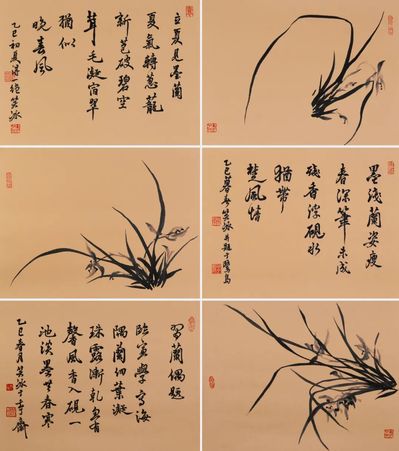 立夏見墨蘭
夏氣轉蔥蘢
新芒破碧空
茸毛凝宿翠
猶似
晚春風
乙巳初夏得一絕笑冰
墨淺蘭姿瘦
春深筆未成
殘香浮硯水
猶帶
楚風情
乙巳暮春笑冰自題于鷺島
習蘭偶題
臨宣學寫海
隅蘭細葉凝
珠露漸乾忽有
馨風香入硯一
池淡墨春寒
乙巳春月笑冰于齋